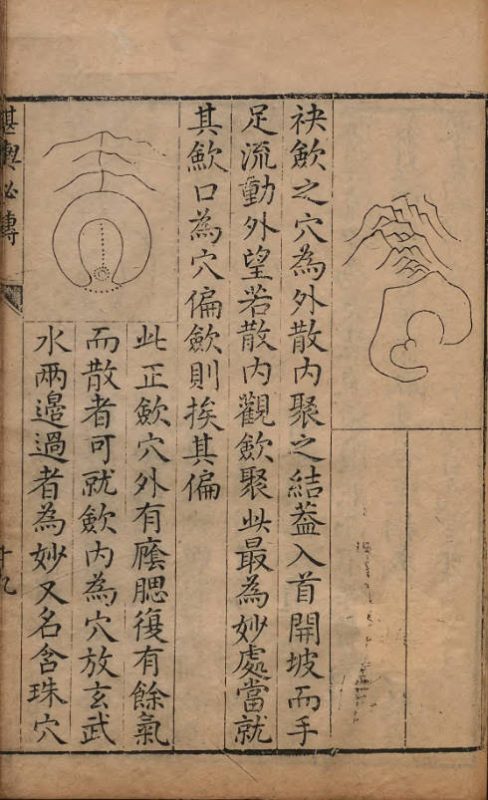 袂歛之穴為外散内聚之結葢入首開坡而手
足流動外望若散内觀歛聚此最為妙處當就
其歛口為穴偏歛則挨其偏
此正歛穴外有廕腮復有餘氣
而散者可就歛内為穴放玄武
水兩邊過者為妙又名含珠穴
堪輿秘傳
十九